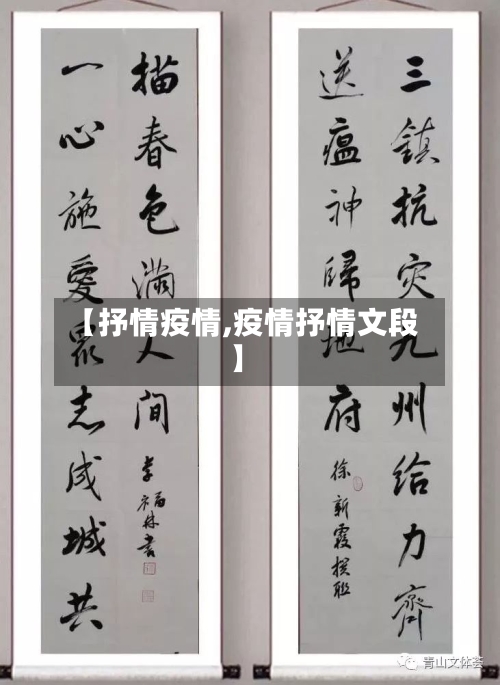 三鎮抗灾九州给力齊
送瘟神歸地府
徐新霞撰联
一心施愛眾志成城共
描春色滿人间
李福林書
【抒情疫情,疫情抒情文段
】
青山文体荟